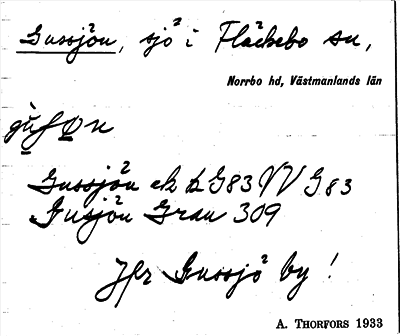 Gussjön, sjö i Fläckebo sn,
Norrbo hd, Västmanlands län
Gussjön ek k G83 VV G83
Gusjön Grau 309
Jfr Gussjö by!
A. THORFORS 1933